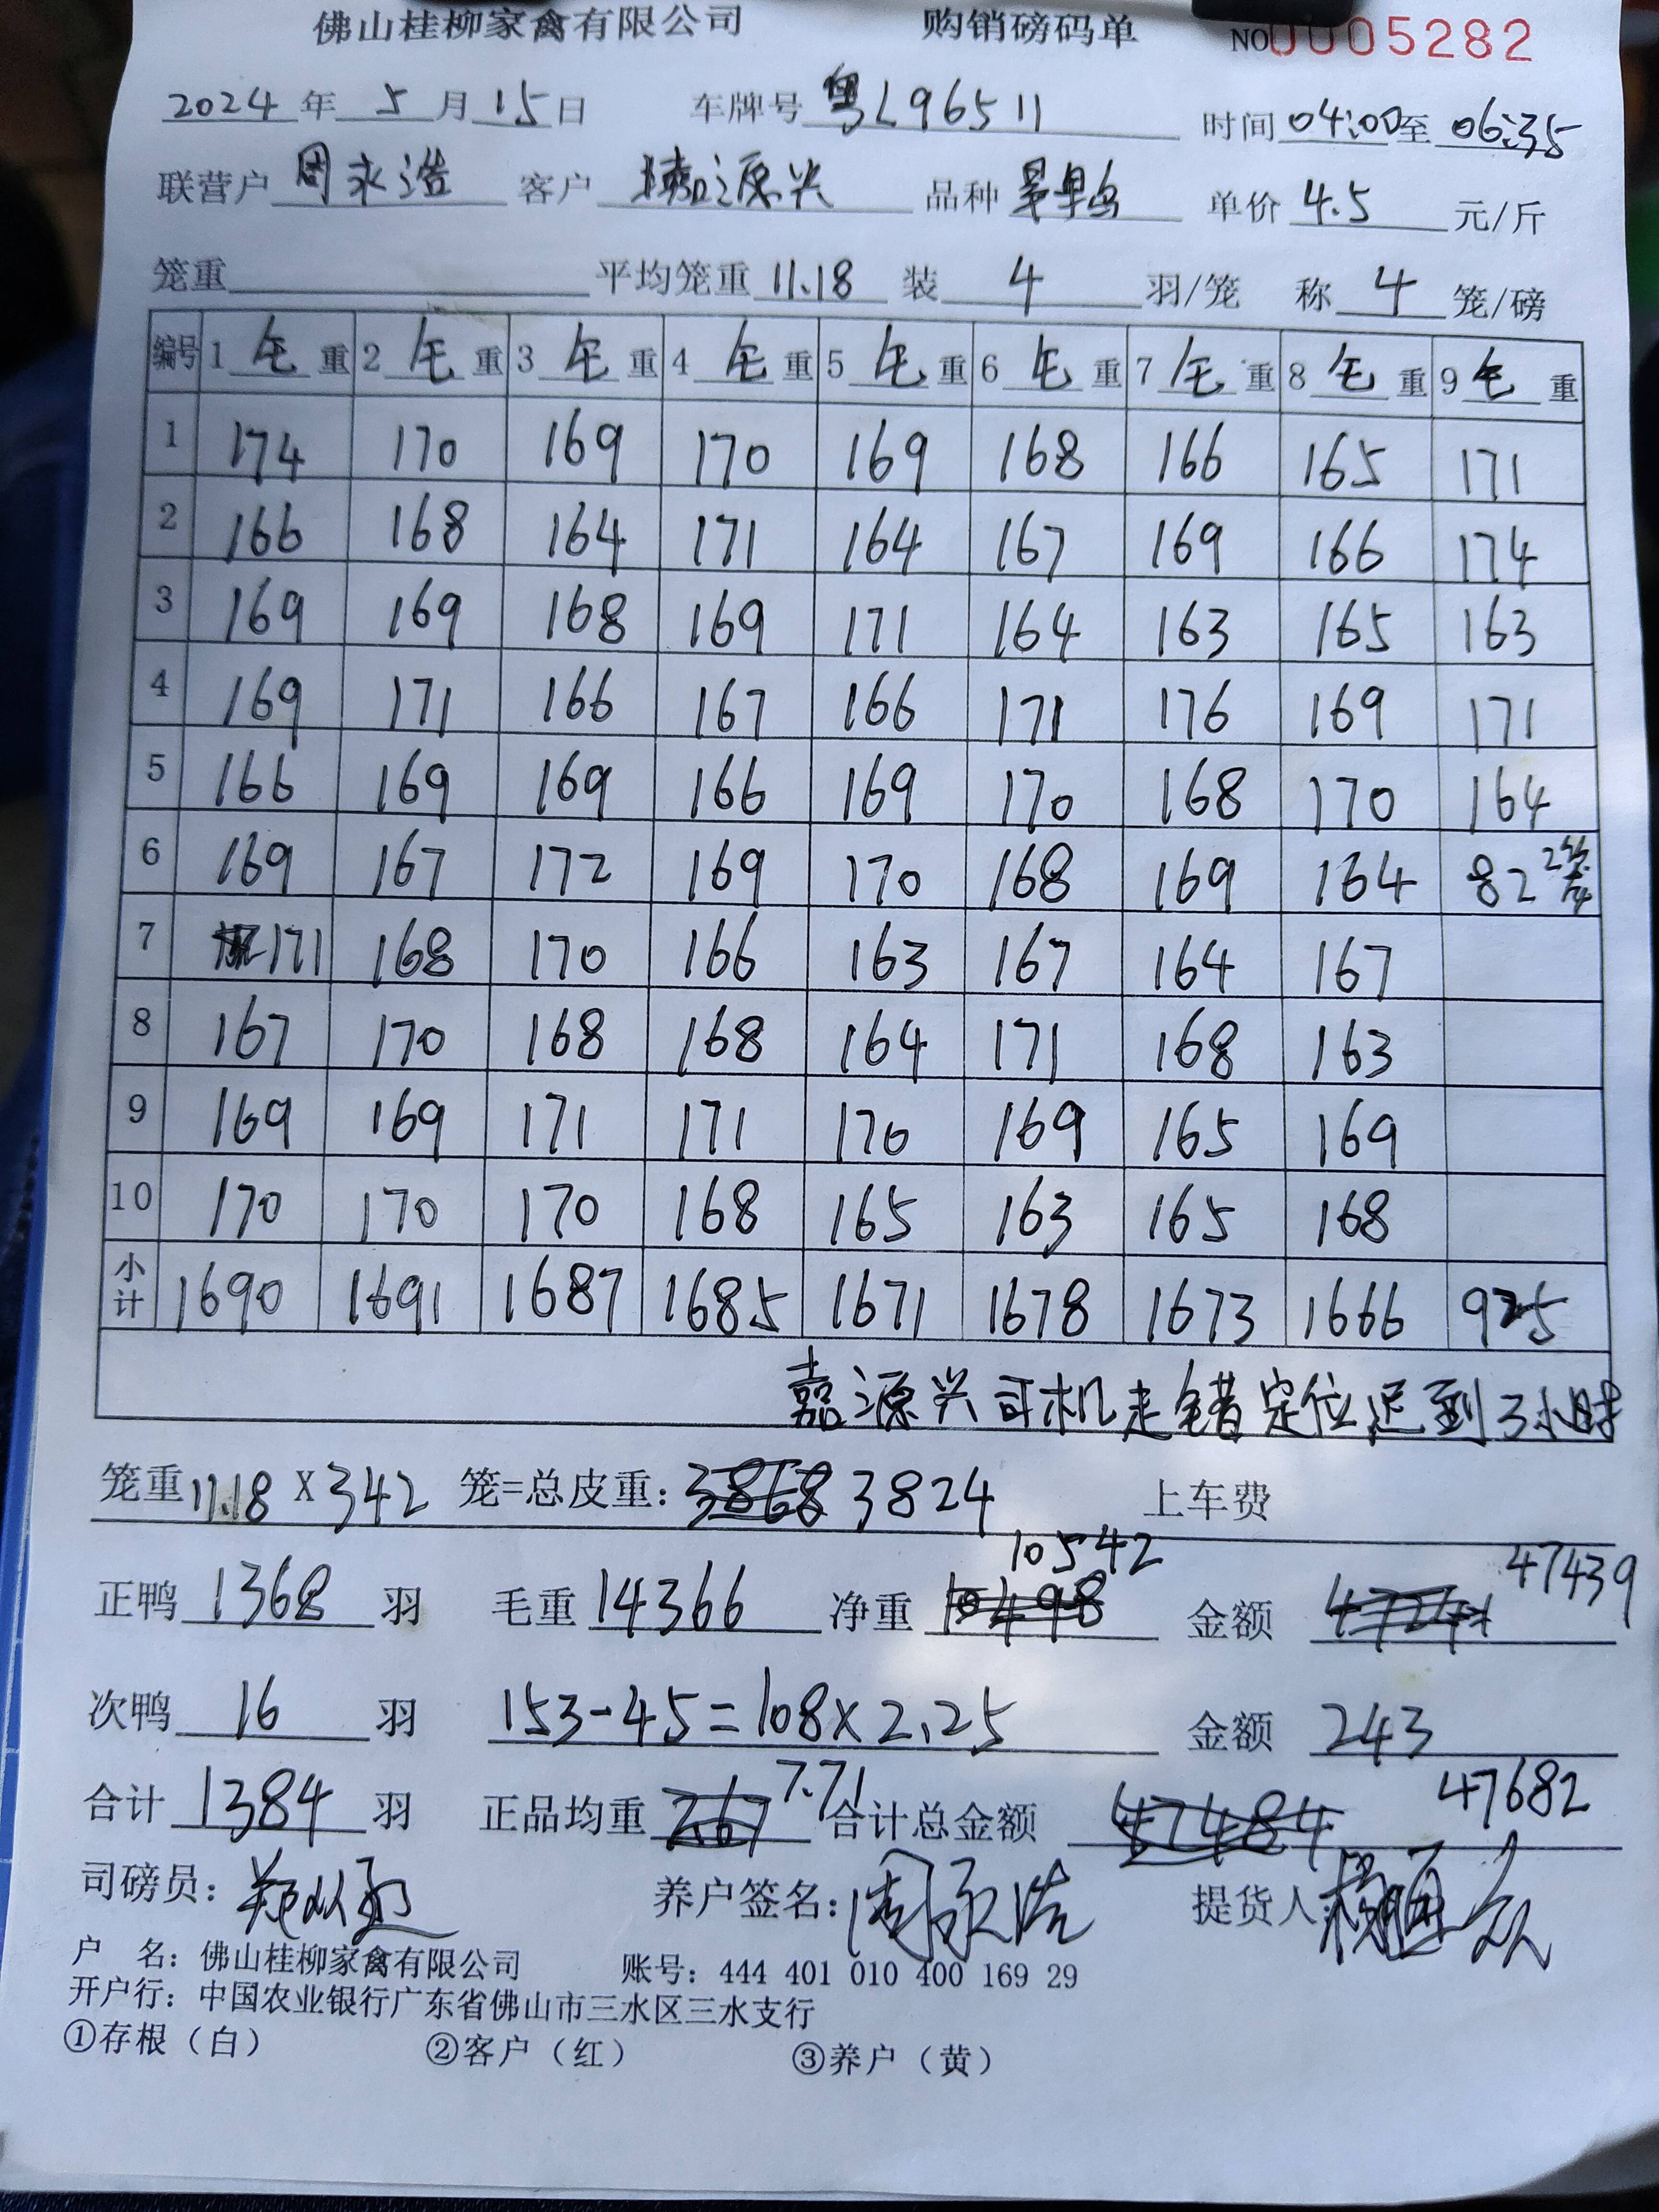 佛山桂柳家禽有限公司 购销磅码单 NO0005282
2024年5月15日 车牌号 粤L96511 时间04:00至06:35
联营户 周永浩 客户 嘉源兴 品种 单价 4.5 元/斤
笼重 平均笼重 11.18 装 4 羽/笼 称 4 笼/磅
编号 1 毛 重 2 毛 重 3 毛 重 4 毛 重 5 毛 重 6 毛 重 7 毛 重 8 毛 重 9 毛 重
1 174 170 169 170 169 168 166 165 171
2 166 168 164 171 164 167 169 166 174
3 169 169 168 169 171 164 163 165 163
4 169 171 166 167 166 171 176 169 171
5 166 169 169 166 169 170 168 170 164
6 169 167 172 169 170 168 169 164 82 2笼
7 171 168 170 166 163 167 164 167
8 167 170 168 168 164 171 168 163
9 169 169 171 171 170 169 165 169
10 170 170 170 168 165 163 165 168
小计 1690 1691 1687 1685 1671 1678 1673 1666 925
嘉源兴司机走错定位迟到3小时
笼重 11.18 X 342 笼=总皮重: 3868 3824 上车费
正鸭 1368 羽 毛重 14366 净重 10498 10542 金额 47439
次鸭 16 羽 153-45=108×2.25 金额 243
合计 1384 羽 正品均重 7.67 7.71 合计总金额 47484 47682
司磅员: 养户签名: 周永浩 提货人:
户 名: 佛山桂柳家禽有限公司 账号: 444 401 010 400 169 29
开户行: 中国农业银行广东省佛山市三水区三水支行
①存根（白） ②客户（红） ③养户（黄）